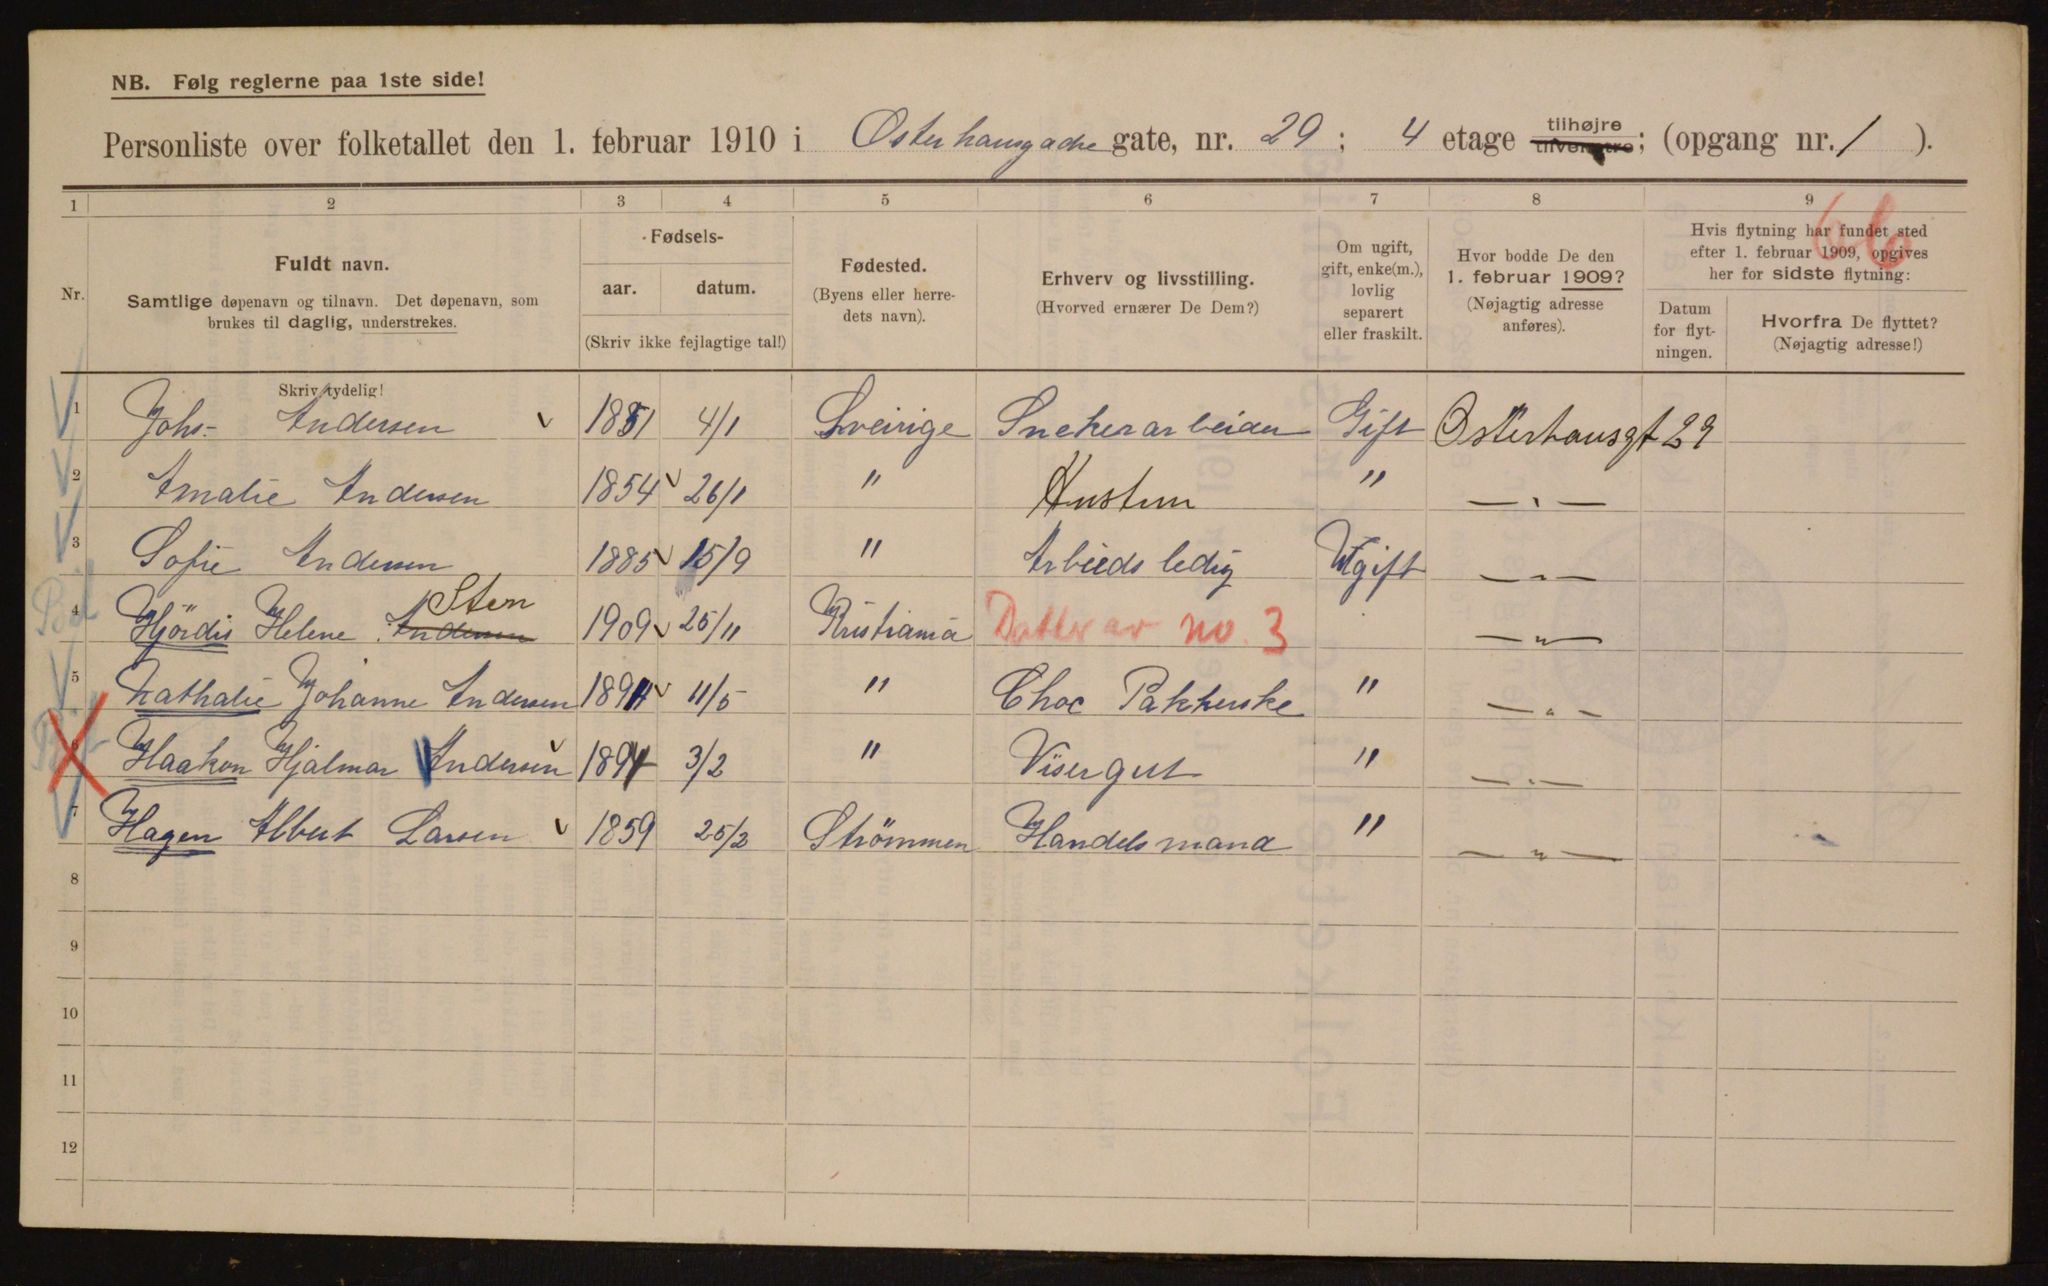 NB. Følg reglerne paa 1ste side!
Personliste over folketallet den 1. februar 1910 i Osterhausgade gate, nr. 29 ; 4 etage tilhøjre tilvenstre ; (opgang nr. 1 ).
1 2 3 4 5 6 7 8 9
Nr.
Fuldt navn.
Samtlige døpenavn og tilnavn. Det døpenavn, som
brukes til daglig, understrekes.
Fødsels-
aar. datum.
(Skriv ikke fejlagtige tal!)
Fødested.
(Byens eller herre-
dets navn).
Erhverv og livsstilling.
(Hvorved ernærer De Dem?)
Om ugift,
gift, enke(m.),
lovlig
separert
eller fraskilt.
Hvor bodde De den
1. februar 1909?
(Nøjagtig adresse
anføres).
Hvis flytning har fundet sted
efter 1. februar 1909, opgives
her for sidste flytning:
Datum
for flyt-
ningen.
Hvorfra De flyttet?
(Nøjagtig adresse!)
Skriv tydelig!
1 Johs- Andersen 1851 4/1 Sveirige Snekerarbeider Gift Osterhausgt 29
2 Amalie Andersen 1854 26/1 " Hustru " — " —
3 Sofie Andersen 1885 15/9 " Arbiedsledig Ugift — " —
4 Hjördis Helene Andersen Sten 1909 25/11 Kristiania Datter av no. 3 — " —
5 Nathalie Johanne Andersen 11/5 " Choc Pakkerske " — " —
6 Haakon Hjalmar Andersen 3/2 " Visergut " — " —
7 Hagen Albert Larsen 1859 25/2 Strömmen Handelsmand " — " —
8
9
10
11
12